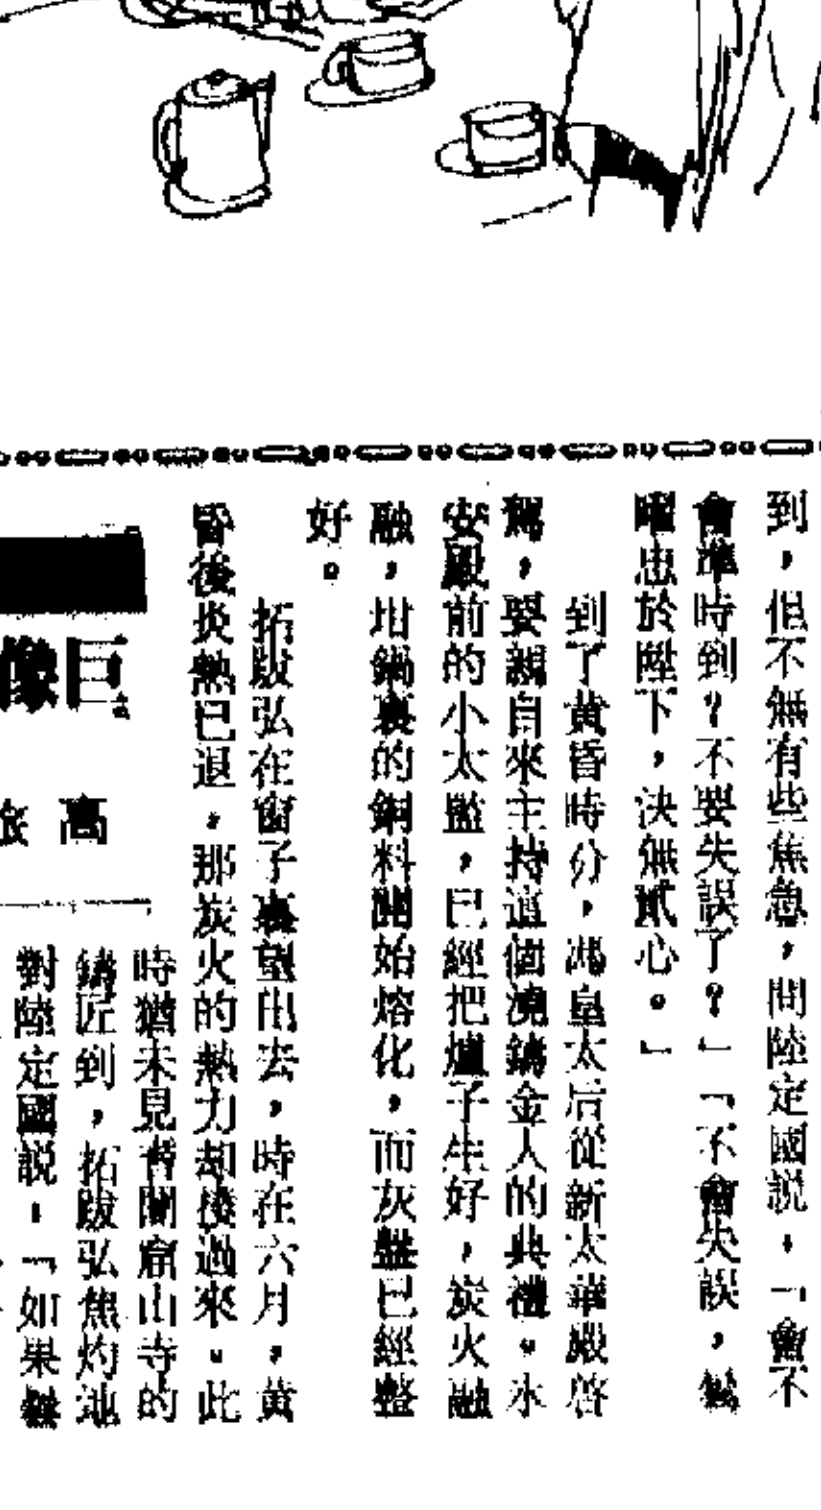 到，但不無有些焦急，問陸定國説，「會不
會準時到？不要失誤了？」「不會失誤，
曜忠於陛下，決無貳心。」
到了黃昏時分，馮皇太后從新太華殿啓
駕，要親自來主持這個澆鑄金人的典禮。永
安殿前的小太監，已經把爐子生好，炭火融
融，坩鍋裏的銅料開始熔化，而灰盤已經整
好。
拓跋弘在窗子裏望出去，時在六月，黃
昏後炎熱已退，那炭火的熱力却撲過來。此
時猶未見青關窟山寺的
鑄匠到，拓跋弘焦灼地
對陸定國説，「如果
巨像
高